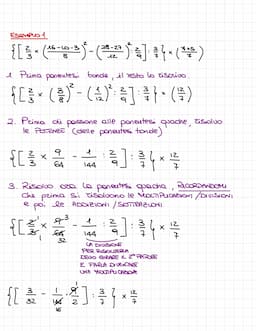 ESEMPIO 1
{[2/3 × ((16-10-3)/8)² - ((28-27)/12)² : 2/9] : 3/7} × ((7+5)/7)
1. Prima parentesi tonde, il resto lo riscrivo.
{[2/3 × (3/8)² - (1/12)² : 2/9] : 3/7} × (12/7)
2. Prima di passare alle parentesi quadre, risolvo
le POTENZE (delle parentesi tonde)
{[2/3 × 9/64 - 1/144 : 2/9] : 3/7} × 12/7
3. Risolvo ora la parentesi quadra, RICORDANDOMI
che prima si risolvono le MOLTIPLICAZIONI/DIVISIONI
e poi le ADDIZIONI/SOTTRAZIONI
{[2¹/3₁ × 9³/64₃₂ - 1/144 : 2/9] : 3/7} × 12/7
LA DIVISIONE
PER RISOLVERLA
DEVO GIRARE IL 2° FATTORE
E FARLA DIVENIRE
UNA MOLTIPLICAZIONE
{[3/32 - 1/144₁₆ · 9¹/2] : 3/7} × 12/7